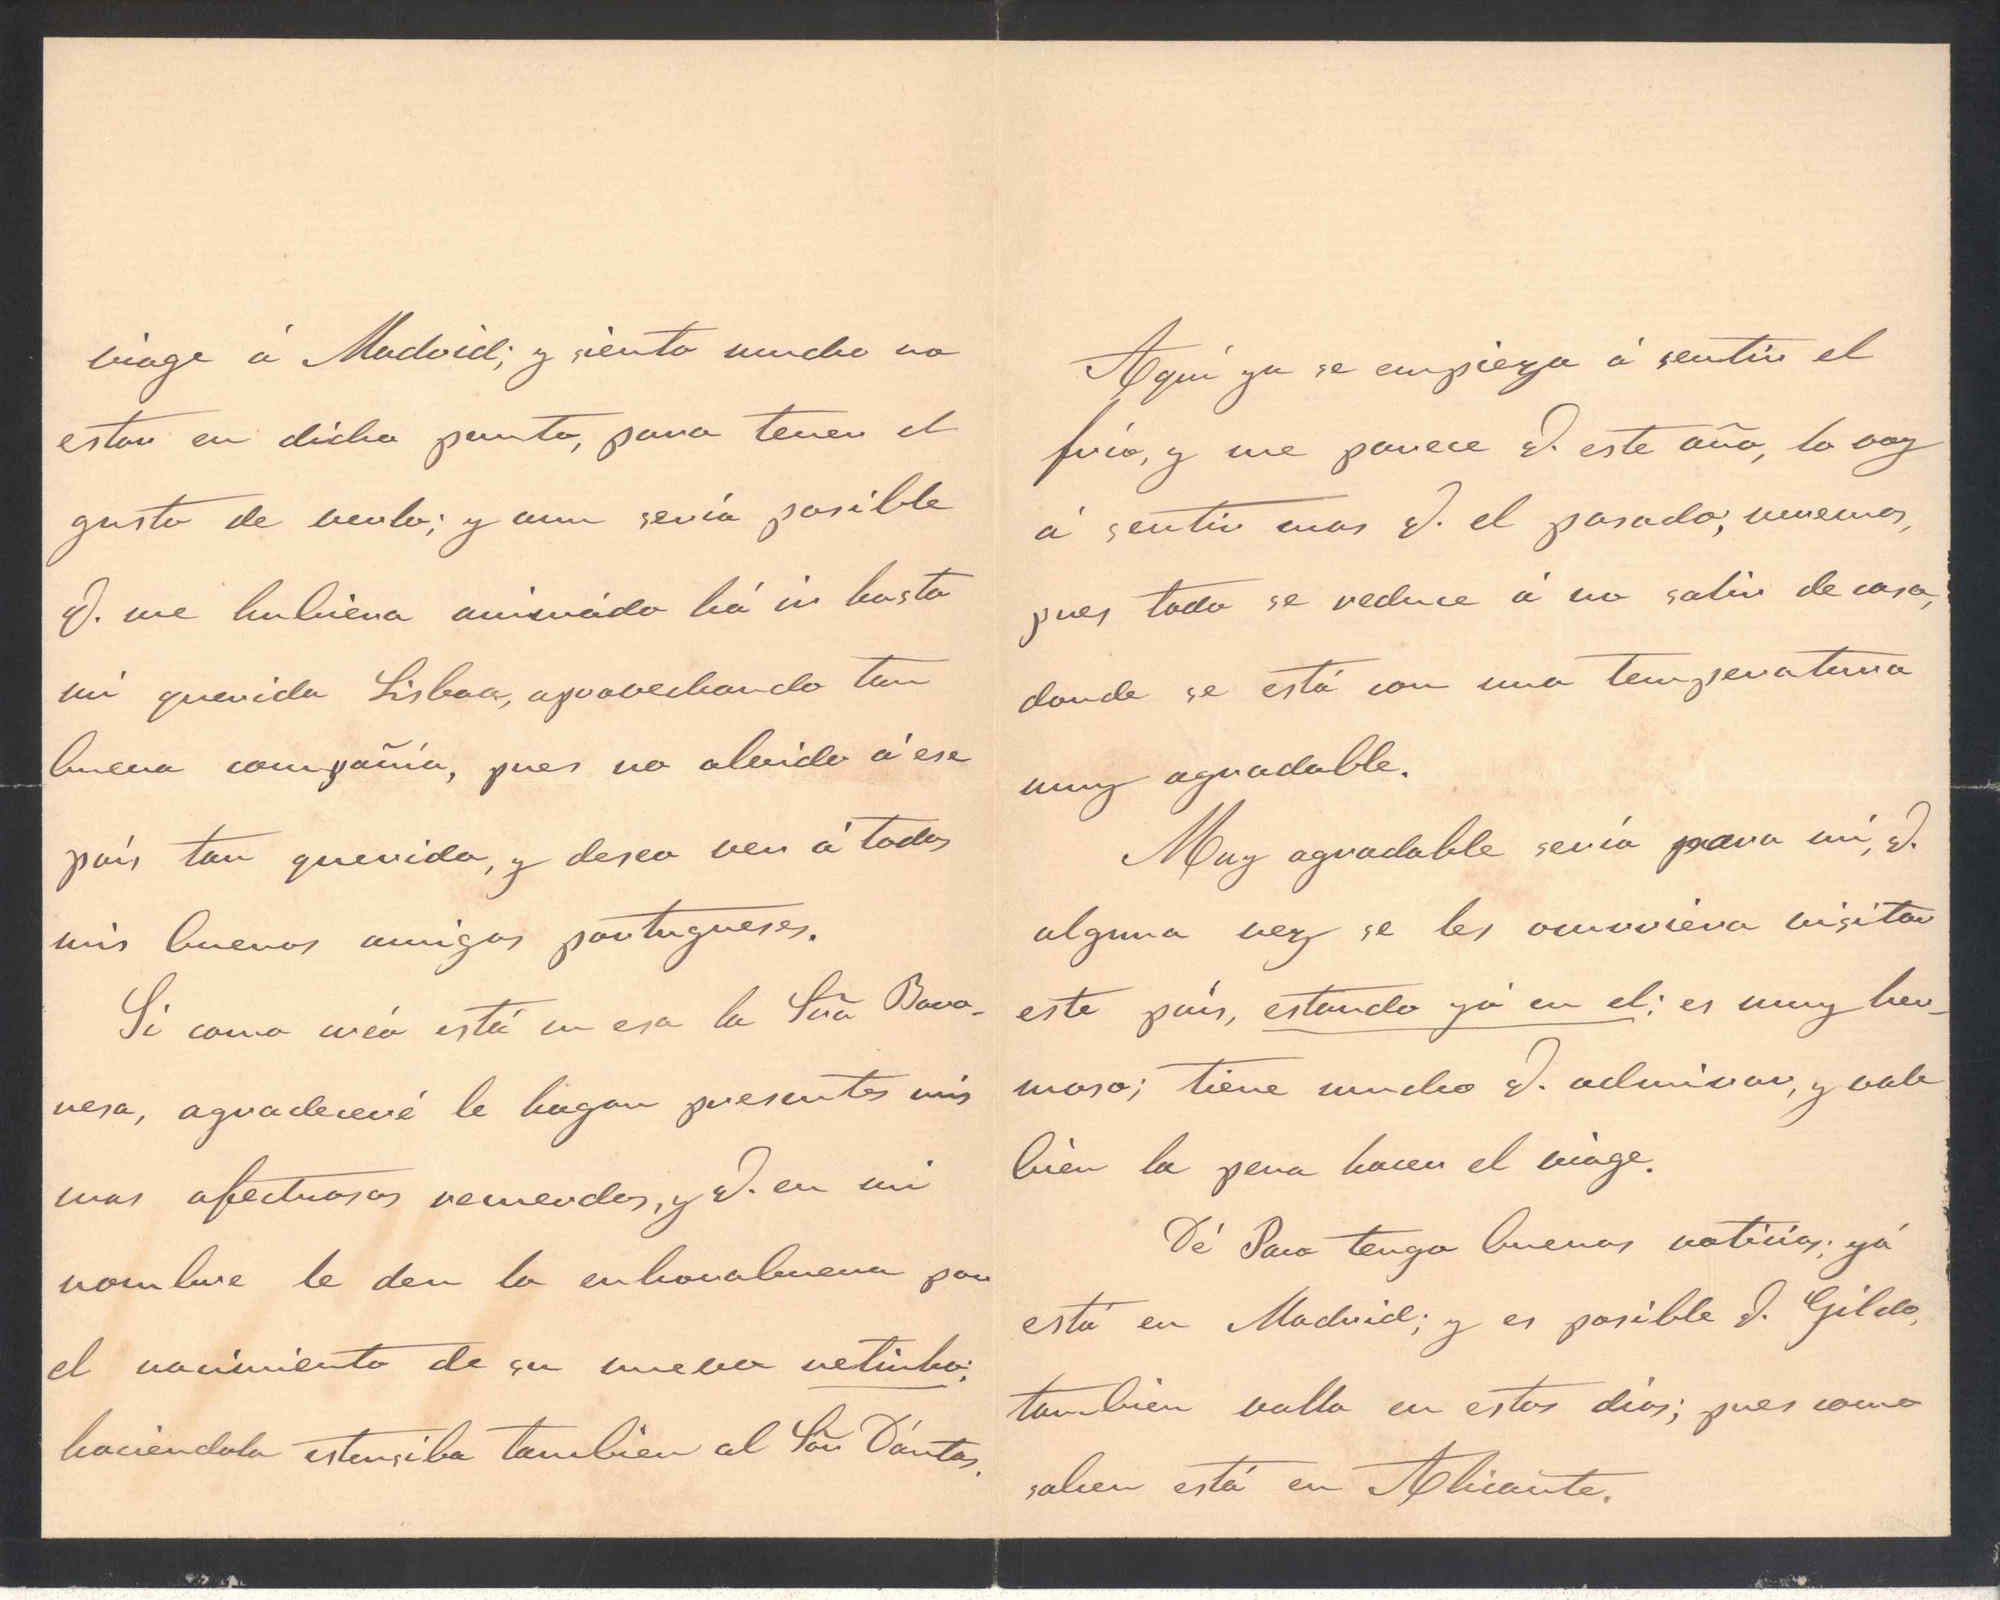 viage á Madrid; y siento mucho no
estar en dicho punto, para tener el
gusto de verlo; y aun sería posible
q. me hubiera animádo há ir hasta
mi querida Lisboa, aprovechando tan
buena compañía, pues no olvido á ese
país tan querido, y deseo ver á todos
mis buenos amigos portugueses.
Si como creó está en esa la Sra Baro-
nesa, agradeceré le hagan presentes mis
mas afectuosos recuerdos, y q. en mi
nombre le den la enhorabuena por
el nacimiento de su nuevo netinho;
haciendola estensiba tambien al Sõr Dántas.
Aquí ya se empieza á sentir el
frío, y me parece q. este año, lo voy
á sentir mas q. el pasado; veremos,
pues todo se reduce á no salir de casa,
donde se está con una temperatura
muy agradable.
Muy agradable sería para mí, q.
alguna vez se les ocurriera visitar
este país, estando yó en el; es muy her-
moso; tiene mucho q. admirar, y vale
bien la pena hacer el viage.
Dé Paco tengo buenas noticias; yá
está en Madrid; y es posible q. Gildo,
tambien valla en estos dias; pues como
saben está en Alicante.